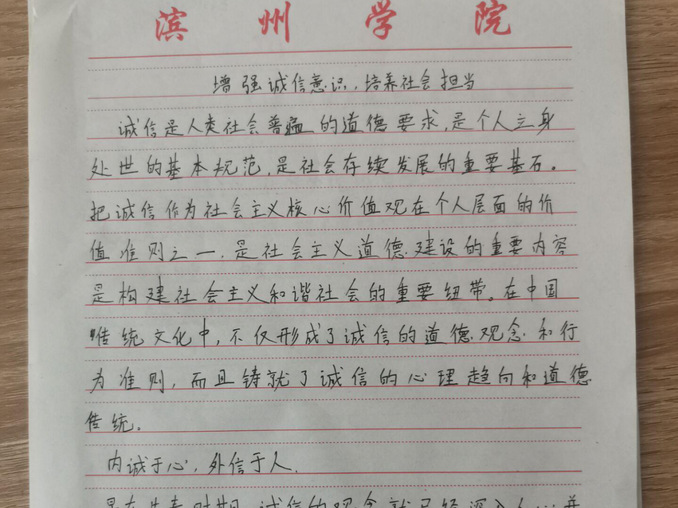 滨州学院
增强诚信意识，培养社会担当
诚信是人类社会普遍的道德要求，是个人立身
处世的基本规范，是社会存续发展的重要基石。
把诚信作为社会主义核心价值观在个人层面的价
值准则之一，是社会主义道德建设的重要内容
是构建社会主义和谐社会的重要纽带。在中国
传统文化中，不仅形成了诚信的道德观念和行
为准则，而且铸就了诚信的心理趋向和道德
传统。
内诚于心，外信于人.
早在先秦时期，诚信的观念就已经深入人心并